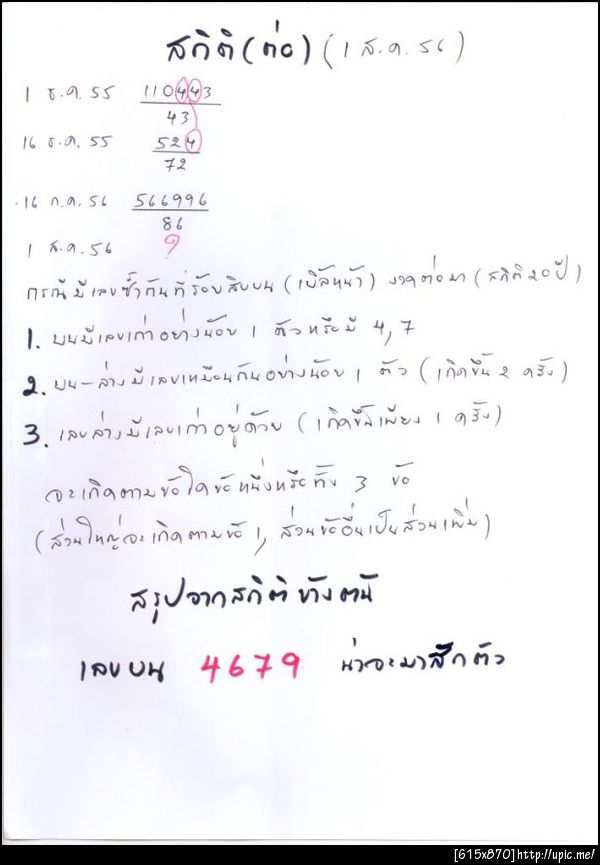 สถิติ(ต่อ) (1 ส.ค. 56)
1 ธ.ค. 55 110443
43
16 ธ.ค. 55 524
72
16 ก.ค. 56 566996
86
1 ส.ค. 56 ?
กรณีมีเลขซ้ำกันที่ร้อยสิบบน (เบิ้ลหน้า) งวดต่อมา (สถิติ 20 ปี)
1. บนมีเลขเก่าอย่างน้อย 1 ตัวหรือมี 4,7
2. บน-ล่างมีเลขเหมือนกันอย่างน้อย 1 ตัว (เกิดขึ้น 2 ครั้ง)
3. เลขล่างมีเลขเก่าอยู่ด้วย (เกิดขึ้นเพียง 1 ครั้ง)
จะเกิดตามข้อใดข้อหนึ่งหรือทั้ง 3 ข้อ
(ส่วนใหญ่จะเกิดตามข้อ 1, ส่วนข้ออื่นเป็นส่วนเพิ่ม)
สรุปจากสถิติข้างต้น
เลขบน 4679 น่าจะมาสักตัว
[615x870]http://upic.me/